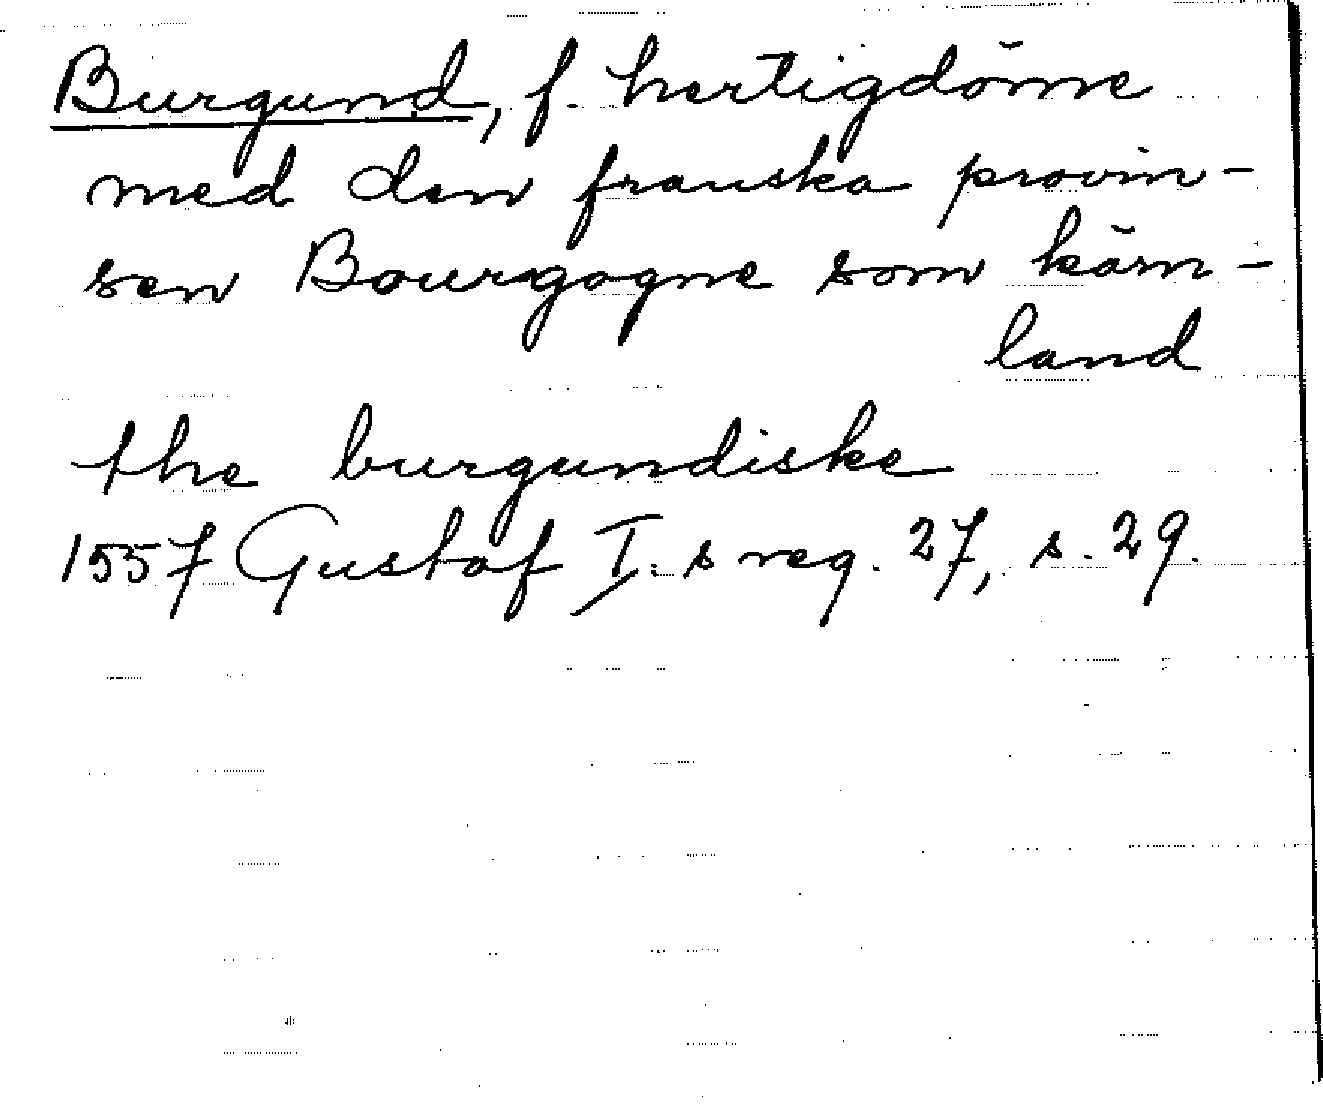 Burgund, f. hertigdöme
med den franska provin-
sen Bourgogne som kärn-
land
the burgundiske
1557 Gustaf I:s reg. 27, s. 29.